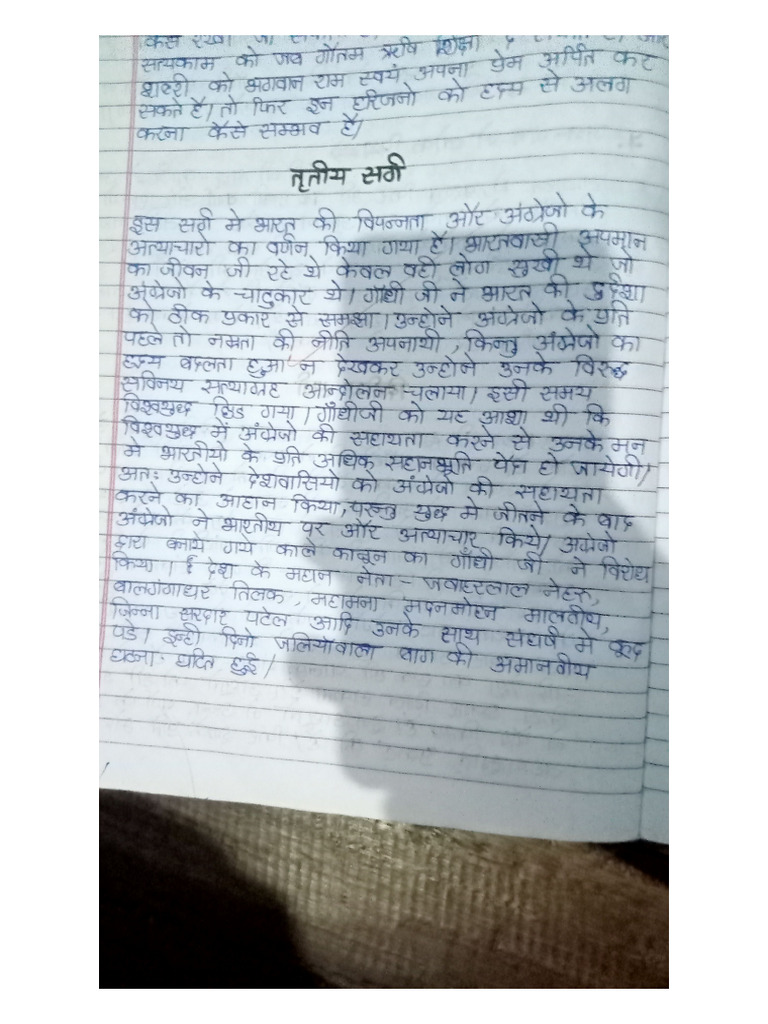 सत्यकाम को जब गौतम ऋषि शिक्षा दे
शबरी को भगवान राम स्वयं अपना प्रेम अर्पित कर
सकते है। तो फिर इन हरिजनो को हृदय से अलग
करना कैसे सम्भव है।
तृतीय सर्ग
इस सर्ग मे भारत की विपन्नता और अंग्रेजो के
अत्याचारो का वर्णन किया गया है। भारतवासी अपमान
का जीवन जी रहे थे केवल वही लोग सुखी थे जो
अंग्रेजो के चाटुकार थे। गाँधी जी ने भारत की दुर्दशा
को ठीक प्रकार से समझा। उन्होने अंग्रेजो के प्रति
पहले तो नम्रता की नीति अपनायी, किन्तु अंग्रेजो का
हृदय बदलता हुआ न देखकर उन्होने उनके विरुद्ध
सविनय सत्याग्रह आन्दोलन चलाया। इसी समय
विश्वयुद्ध छिड गया। गाँधीजी को यह आशा थी कि
विश्वयुद्ध में अंग्रेजो की सहायता करने से उनके मन
मे भारतीयो के प्रति अधिक सहानभूति पैदा हो जायेगी।
अतः उन्होने देशवासियो को अंग्रेजो की सहायता
करने का आहान किया, परन्तु युद्ध मे जीतने के बाद
अंग्रेजो ने भारतीय पर और अत्याचार किये। अंग्रेजो
द्वारा बनाये गये काले कानून का गाँधी जी ने विरोध
किया। देश के महान नेता - जवाहरलाल नेहरू,
बालगंगाधर तिलक, महामना मदनमोहन मालवीय,
जिन्ना सरदार पटेल आदि उनके साथ संघर्ष मे कूद
पडे। इन्ही दिनो जलियाँवाला बाग की अमानवीय
घटना घटित हुई।